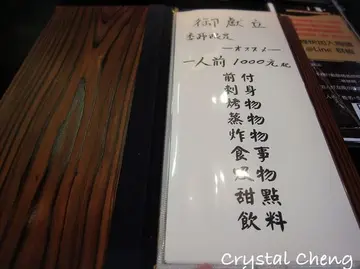 御献立
季節限定
—オススメ—
一人前 1000元起
前付
刺身
烤物
蒸物
炸物
食事
物
甜點
飲料
@Line
Crystal Cheng